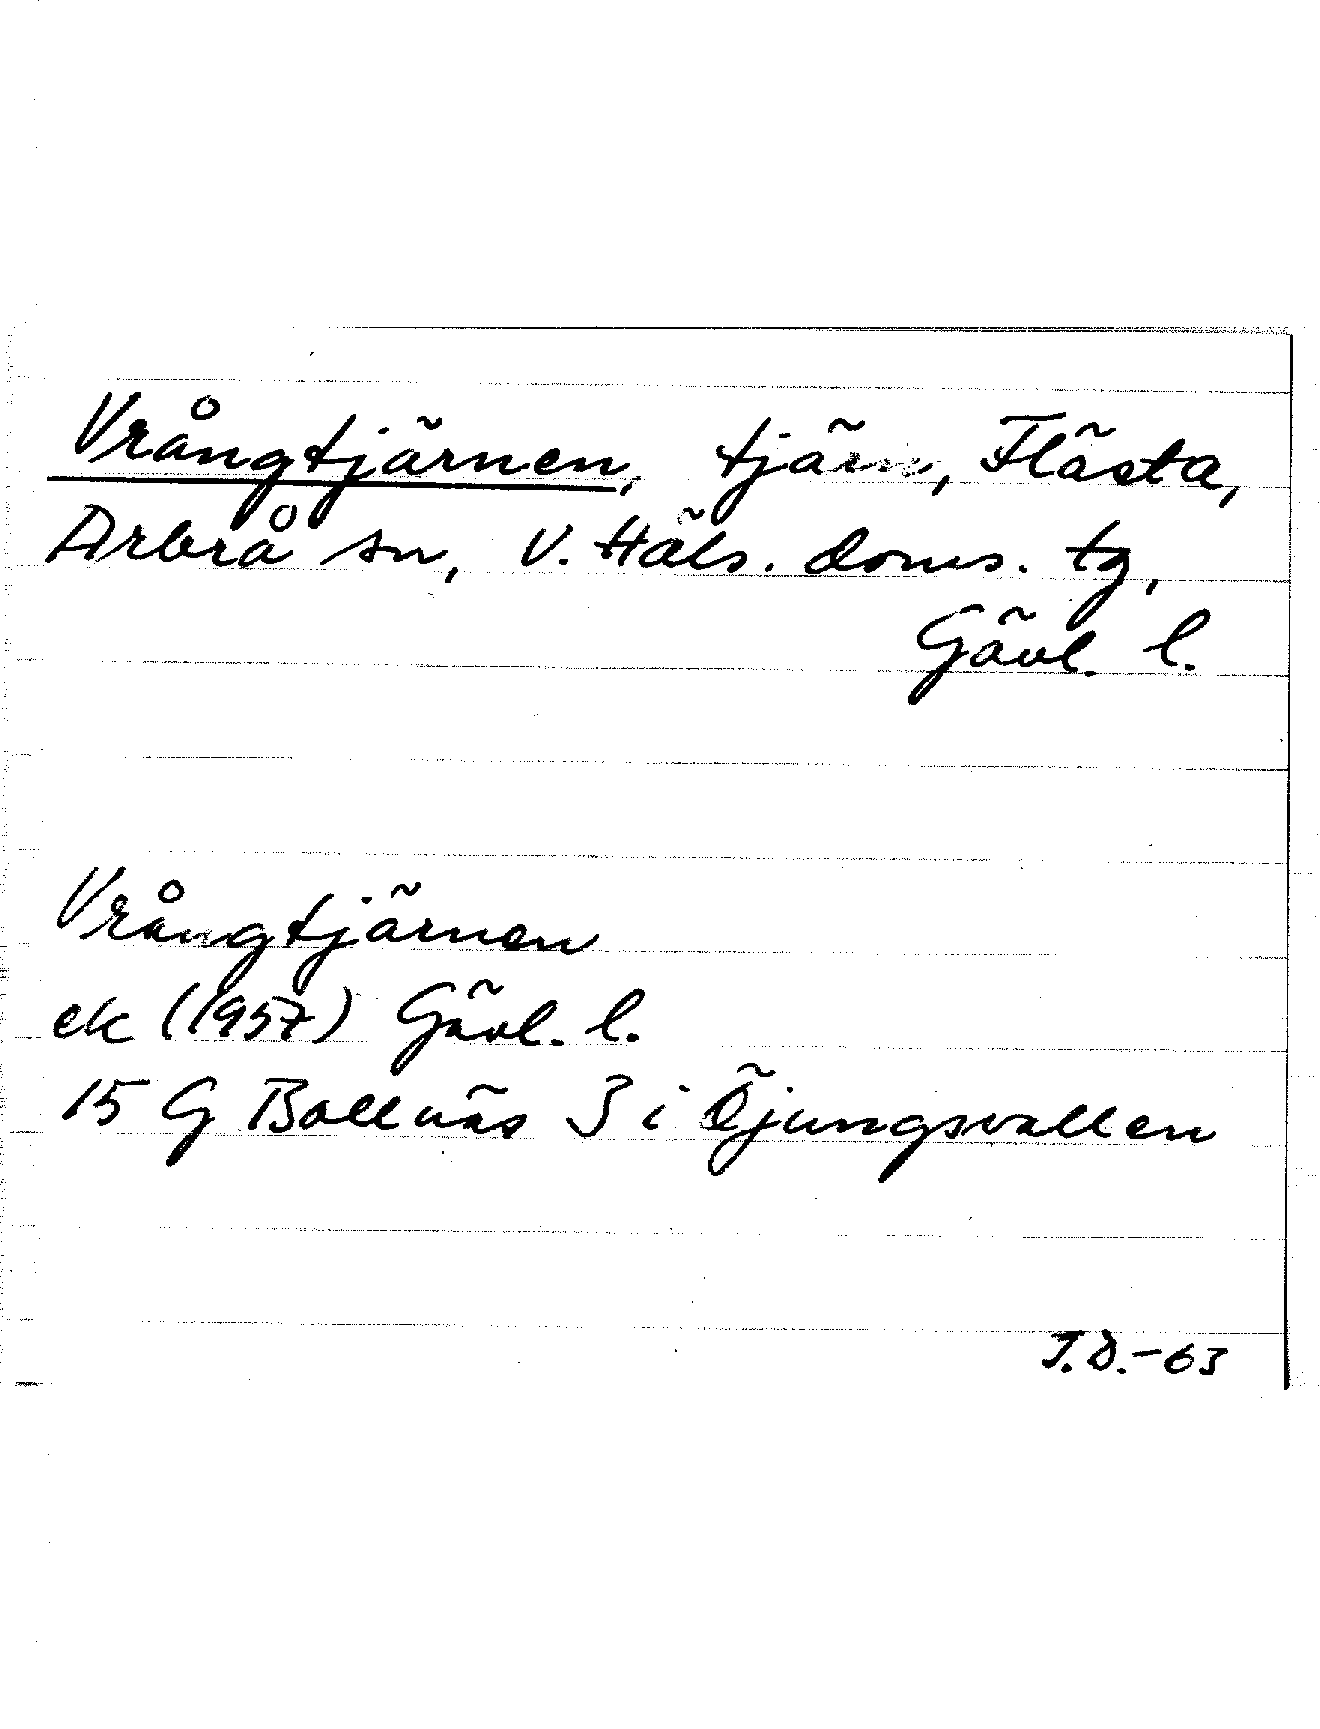 Vrångtjärnen, tjärn, Flästa,
Arbrå sn, V. Häls. doms. tg,
Gävl. l.
Vrångtjärnen
ek (1957) Gävl. l.
15 G Bollnäs 3 i Öjungsvallen
I.D.-63